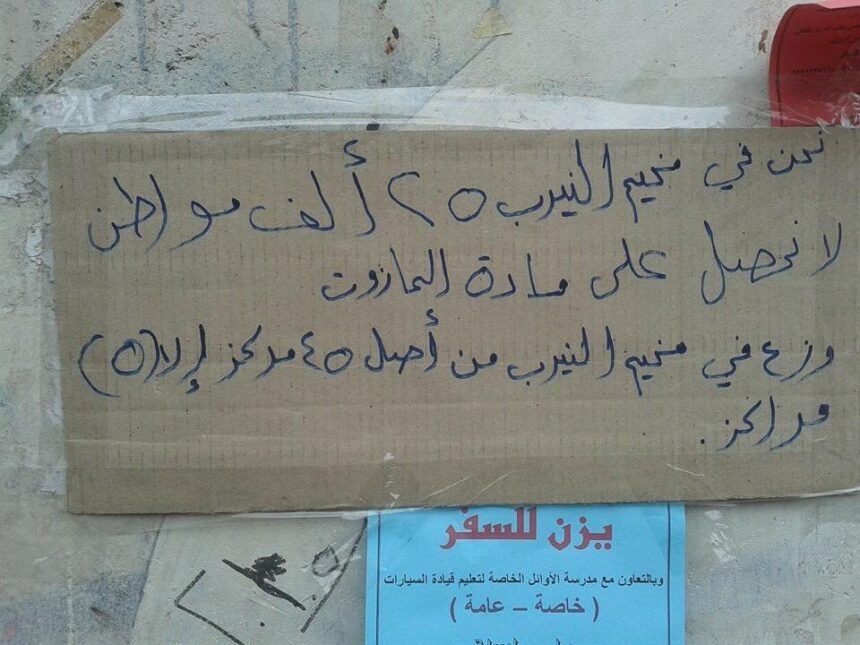 نحن في مخيم النيرب ٢٥ ألف مواطن
لا نحصل على مادة المازوت
وزع في مخيم النيرب من أصل ٤٥ مركز إلا (٥)
مراكز.
يزن للسفر
وبالتعاون مع مدرسة الأوائل الخاصة لتعليم قيادة السيارات
( خاصة – عامة )